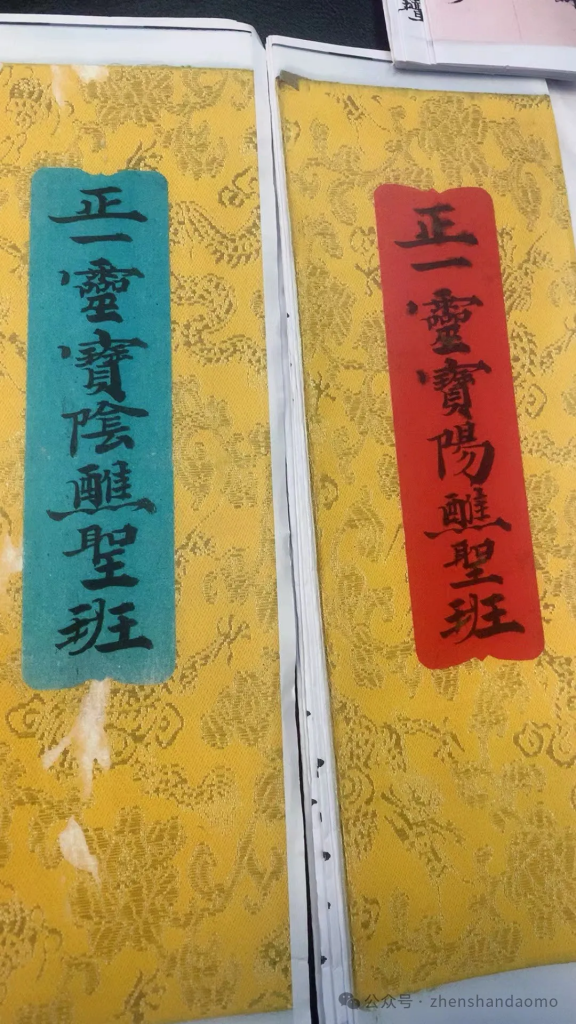 正一靈寶陰醮聖班
正一靈寶陽醮聖班
公众号 · zhenshandaomo